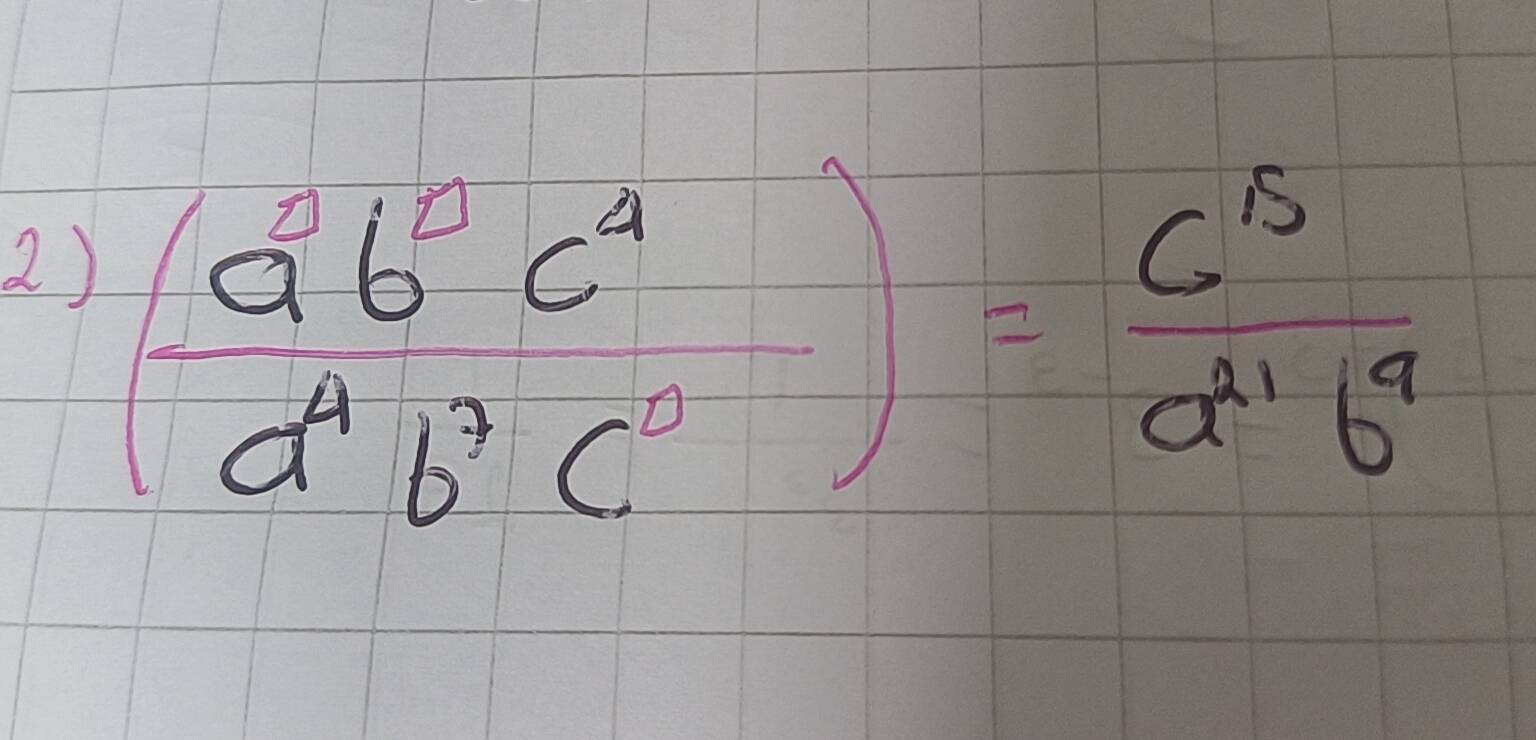 2) (a^□ b^□ c^4 / a^4 b^7 c^□) = c^15 / a^21 b^9